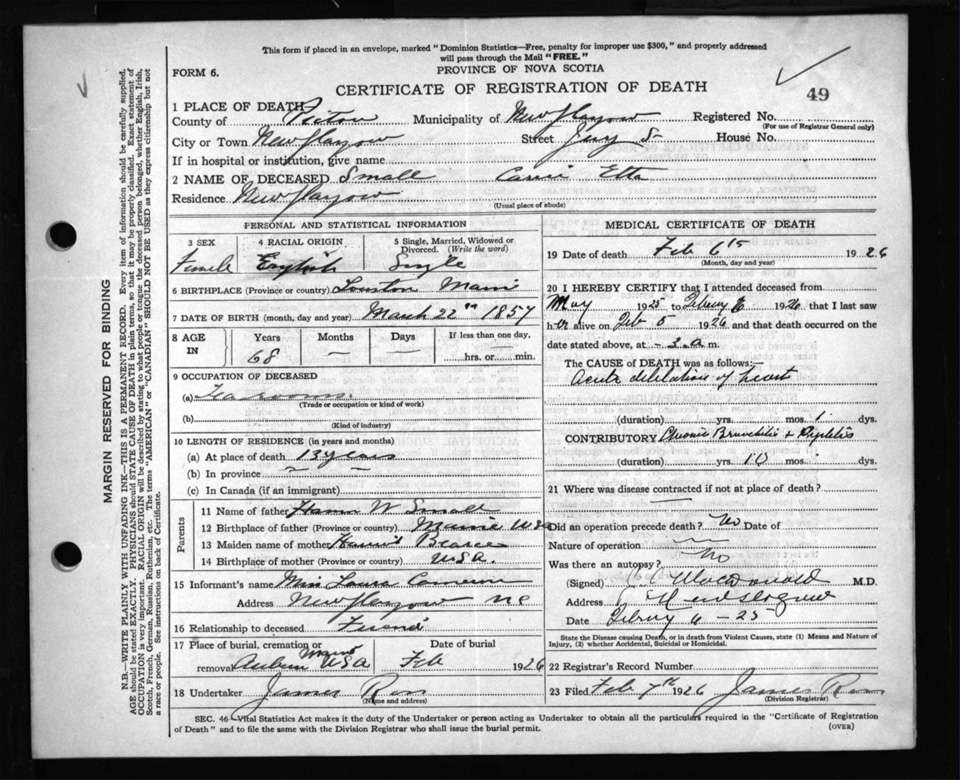 This form if placed in an envelope, marked "Dominion Statistics—Free, penalty for improper use $300," and properly addressed
will pass through the Mail "FREE."
FORM 6.
PROVINCE OF NOVA SCOTIA
CERTIFICATE OF REGISTRATION OF DEATH
49
1 PLACE OF DEATH
County of Pictou Municipality of New Glasgow Registered No.
(For use of Registrar General only)
City or Town New Glasgow Street House No.
If in hospital or institution, give name
2 NAME OF DECEASED Small Carrie Etta
Residence New Glasgow
(Usual place of abode)
PERSONAL AND STATISTICAL INFORMATION
3 SEX 4 RACIAL ORIGIN 5 Single, Married, Widowed or Divorced. (Write the word)
Female English Single
6 BIRTHPLACE (Province or country)
7 DATE OF BIRTH (month, day and year) March 22nd 1857
8 AGE IN Years Months Days If less than one day,
68 — — hrs. or min.
9 OCCUPATION OF DECEASED
(a) Tea rooms
(Trade or occupation or kind of work)
(b)
(Kind of industry)
10 LENGTH OF RESIDENCE (in years and months)
(a) At place of death 13 years
(b) In province
(c) In Canada (if an immigrant)
Parents
11 Name of father W Small
12 Birthplace of father (Province or country) Maine USA
13 Maiden name of mother
14 Birthplace of mother (Province or country) USA.
15 Informant's name Miss Laura Cameron
Address New Glasgow NS
16 Relationship to deceased Friend
17 Place of burial, cremation or removal Auburn Maine USA Date of burial Feb 1926
18 Undertaker James Ross
(Name and address)
MEDICAL CERTIFICATE OF DEATH
19 Date of death Feb 6th 1926
(Month, day and year)
20 I HEREBY CERTIFY that I attended deceased from
May 1925 to FebrUy 6 1926 that I last saw
her alive on Feb 5 1926 and that death occurred on the
date stated above, at 3 a. m.
The CAUSE of DEATH was as follows:—
Acute dilatation of heart
(duration) yrs. mos. 1 dys.
CONTRIBUTORY Chronic Bronchitis &
(duration) yrs. 10 mos. dys.
21 Where was disease contracted if not at place of death?
Did an operation precede death? No Date of
Nature of operation —
Was there an autopsy? No
(Signed) Macdonald M.D.
Address New Glasgow
Date 6 - 25
State the Disease causing Death, or in death from Violent Causes, state (1) Means and Nature of
Injury, (2) whether Accidental, Suicidal or Homicidal.
22 Registrar's Record Number
23 Filed Feb 7th 1926 James Ross
(Division Registrar)
SEC. 46—Vital Statistics Act makes it the duty of the Undertaker or person acting as Undertaker to obtain all the particulars required in the "Certificate of Registration
of Death" and to file the same with the Division Registrar who shall issue the burial permit.
(OVER)
MARGIN RESERVED FOR BINDING
N.B.—WRITE PLAINLY WITH UNFADING INK—THIS IS A PERMANENT RECORD. Every item of information should be carefully supplied.
AGE should be stated EXACTLY. PHYSICIANS should STATE CAUSE OF DEATH in plain terms, so that it may be properly classified. Exact statement of
OCCUPATION is very important. RACIAL ORIGIN will be described by stating to what people or tongue the deceased person belonged, whether English, Irish,
Scotch, French, German, Russian, Ruthenian, etc. The terms "AMERICAN" or "CANADIAN" SHOULD NOT BE USED as they express citizenship but not
a race or people. See instructions on back of Certificate.